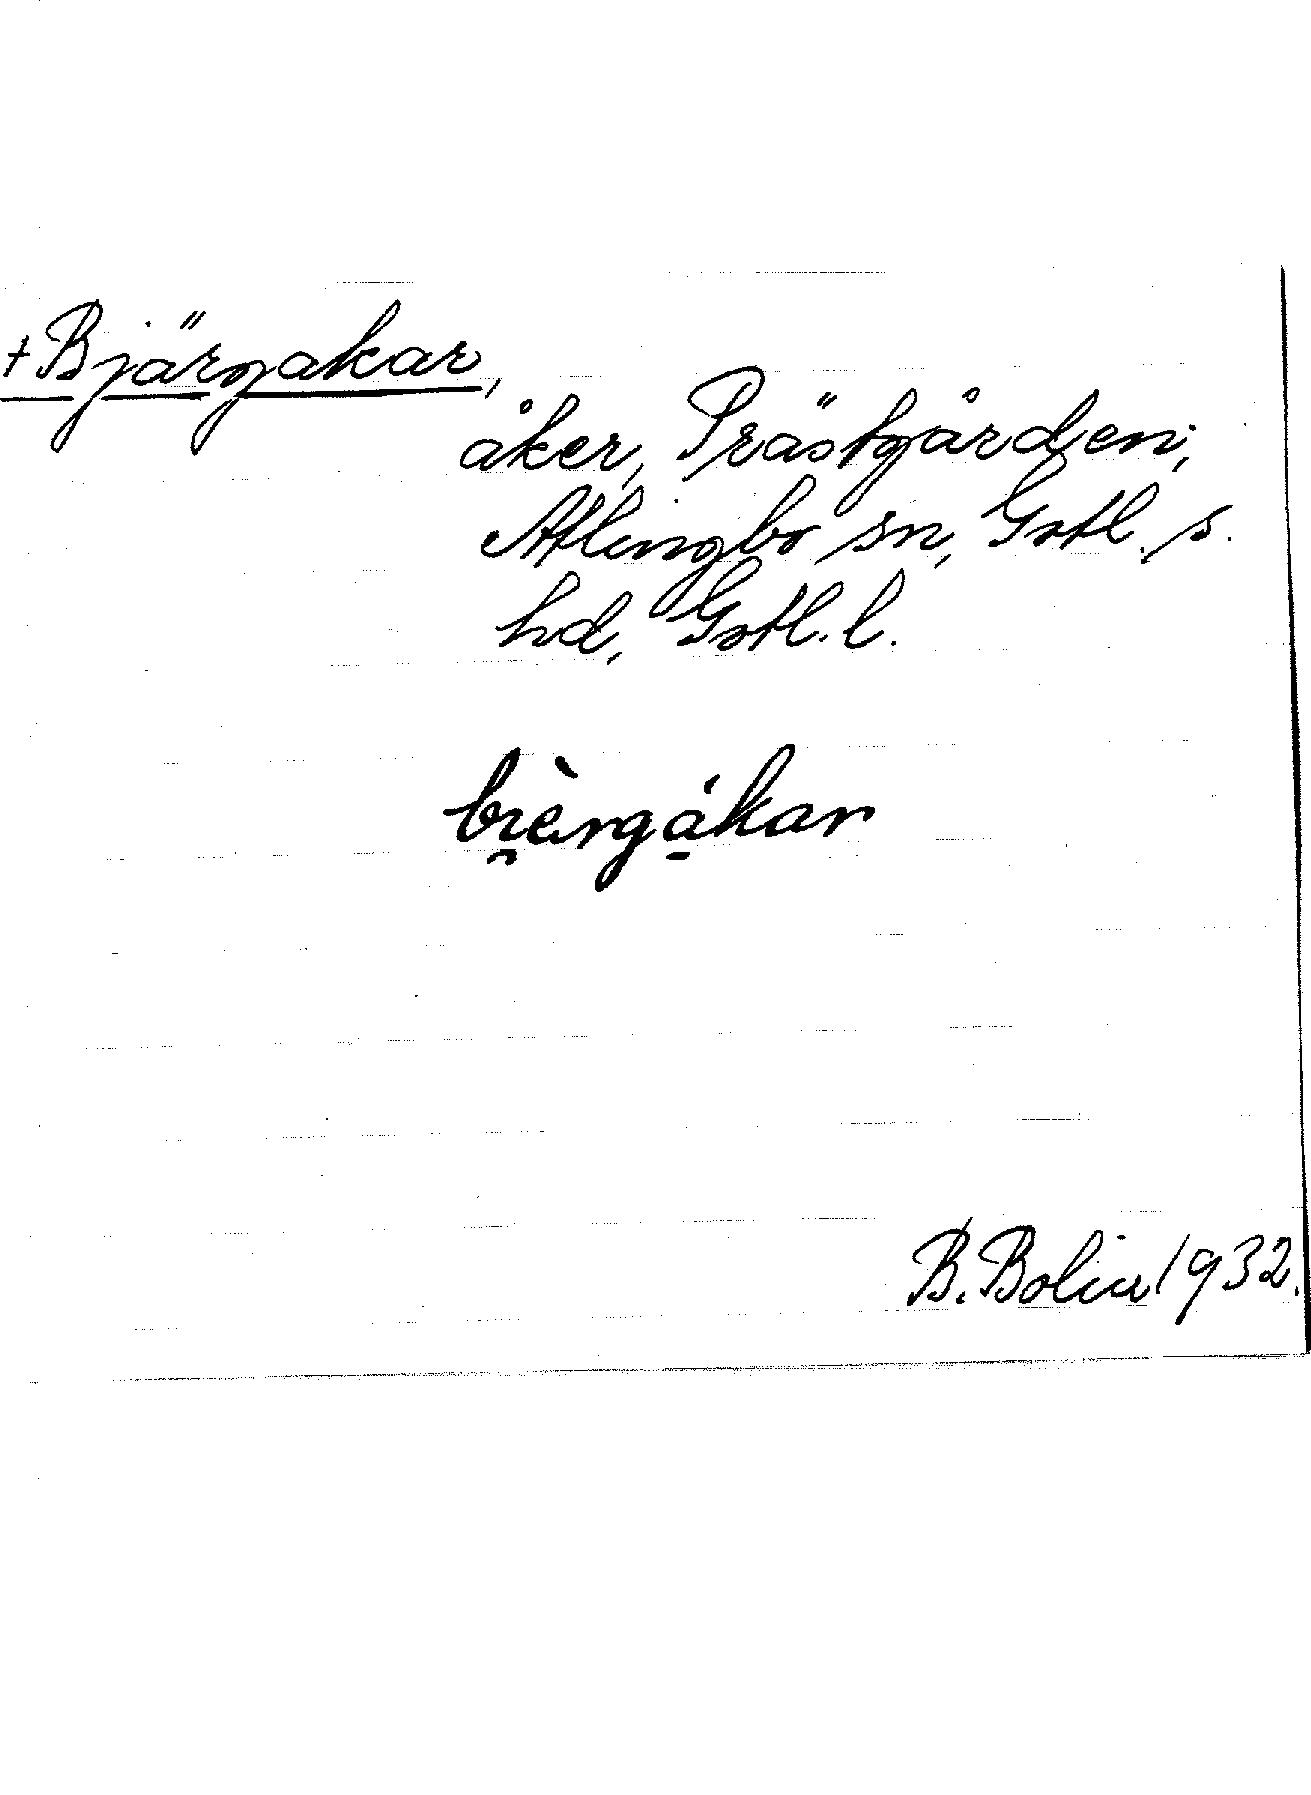 +Bjärgakar,
åker, Prästgården,
Atlingbo sn, Gotl. s.
hd, Gotl. l.
bi̯èrgá̱kar
B. Bolin 1932.